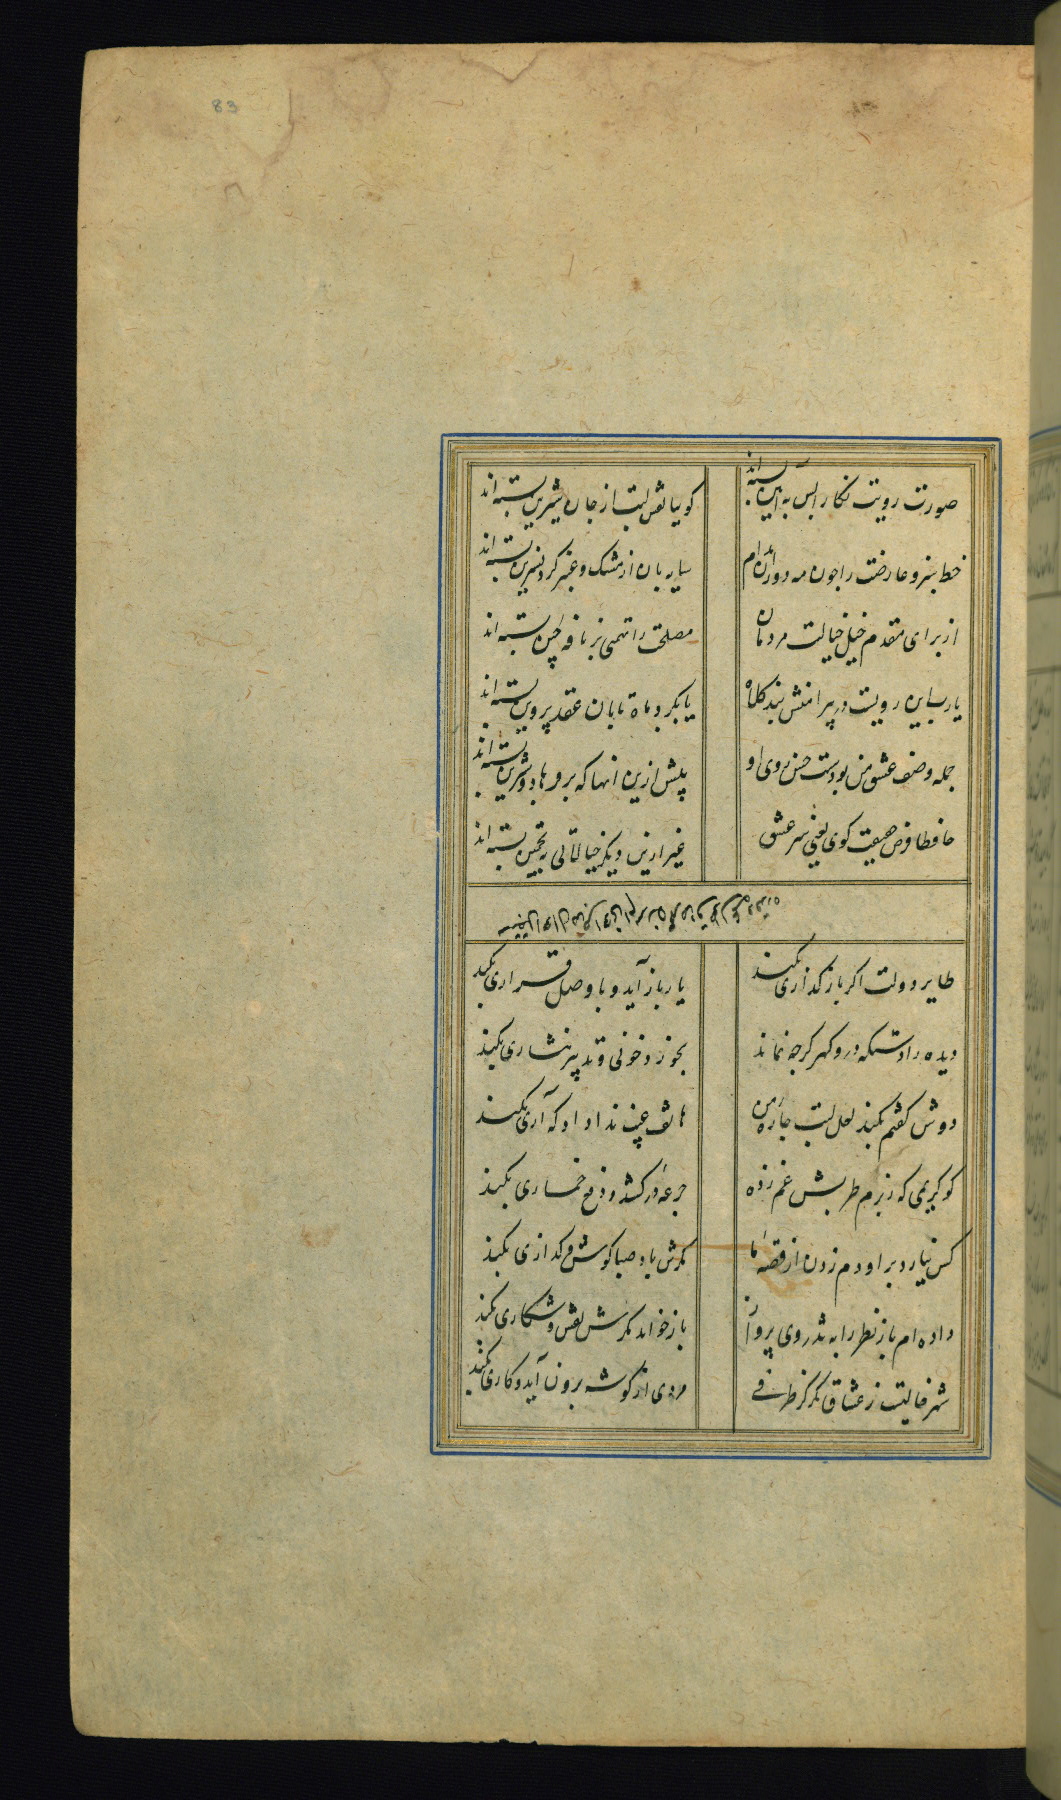 83
صورت رویت نکارابس به آیین بسته اند
کوییا نقش لبت از جان شیرین بسته اند
خط سبز و عارضت را چون مه دوران ام
سایه بان از مشک و عنبر کرد نسرین بسته اند
از برای مقدم خیل خیالت مردمان
بر نافه چین بسته اند
یارب این رویست در پیرامنش بند کلاه
یا بکرد ماه تابان عقد پروین بسته اند
جمله وصف عشق من بودست حسن روی او
پیش ازین انها که بر فرهاد و شیرین بسته اند
حافظا حقیقت کوی یعنی سر عشق
غیر ازین دیکر خیالاتی به تخمین بسته اند
طایر دولت اکر باز کذاری بکند
یار باز آید و با وصل قراری بکند
دیده را دستکه در و کهر کرچه نماند
بخورد خونی و تدبیر نثاری بکند
دوش کفتم بکند لعل لبت چاره من
هاتف غیب ندا داد که آری بکند
کو کریمی که ز بزم طربش غم زده
جرعه درکشد و دفع خماری بکند
کس نیارد بر او دم زدن از قصه ما
مکرش باد صبا کوش کذاری بکند
داده ام باز نظر را به تذروی پرواز
باز خواند مکرش نقش و شکاری بکند
شهر خالیست ز عشاق مکر کز طرفی
مردی از کوشه برون آید و کاری بکند